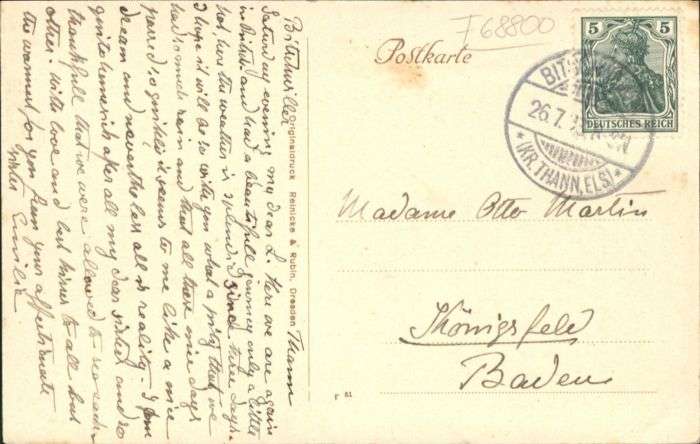 Bitschwiller Thann
Saturday evening my dear L. Here we are again
in Bitsch. and had a beautifull journey only a little
hot, here the weather is splendid since three days.
I hope it will be so with you what a pity that we
had so much rain and that all these nice days
passed so quickly it seems to me like a nice
dream and nevertheless all is reality. I am
quite homesick after all my dear sister and so
thankfull that we were allowed to see each
other. With love and best kisses to all but
the warmest for you from your affectionate
sister Emilie
Originaldruck Reinicke & Rubin, Dresden
F 68800
Postkarte
5 5
DEUTSCHES REICH
26.7.
*(KR. THANN, ELS)*
Madame Otto Martin
Königsfeld
Baden